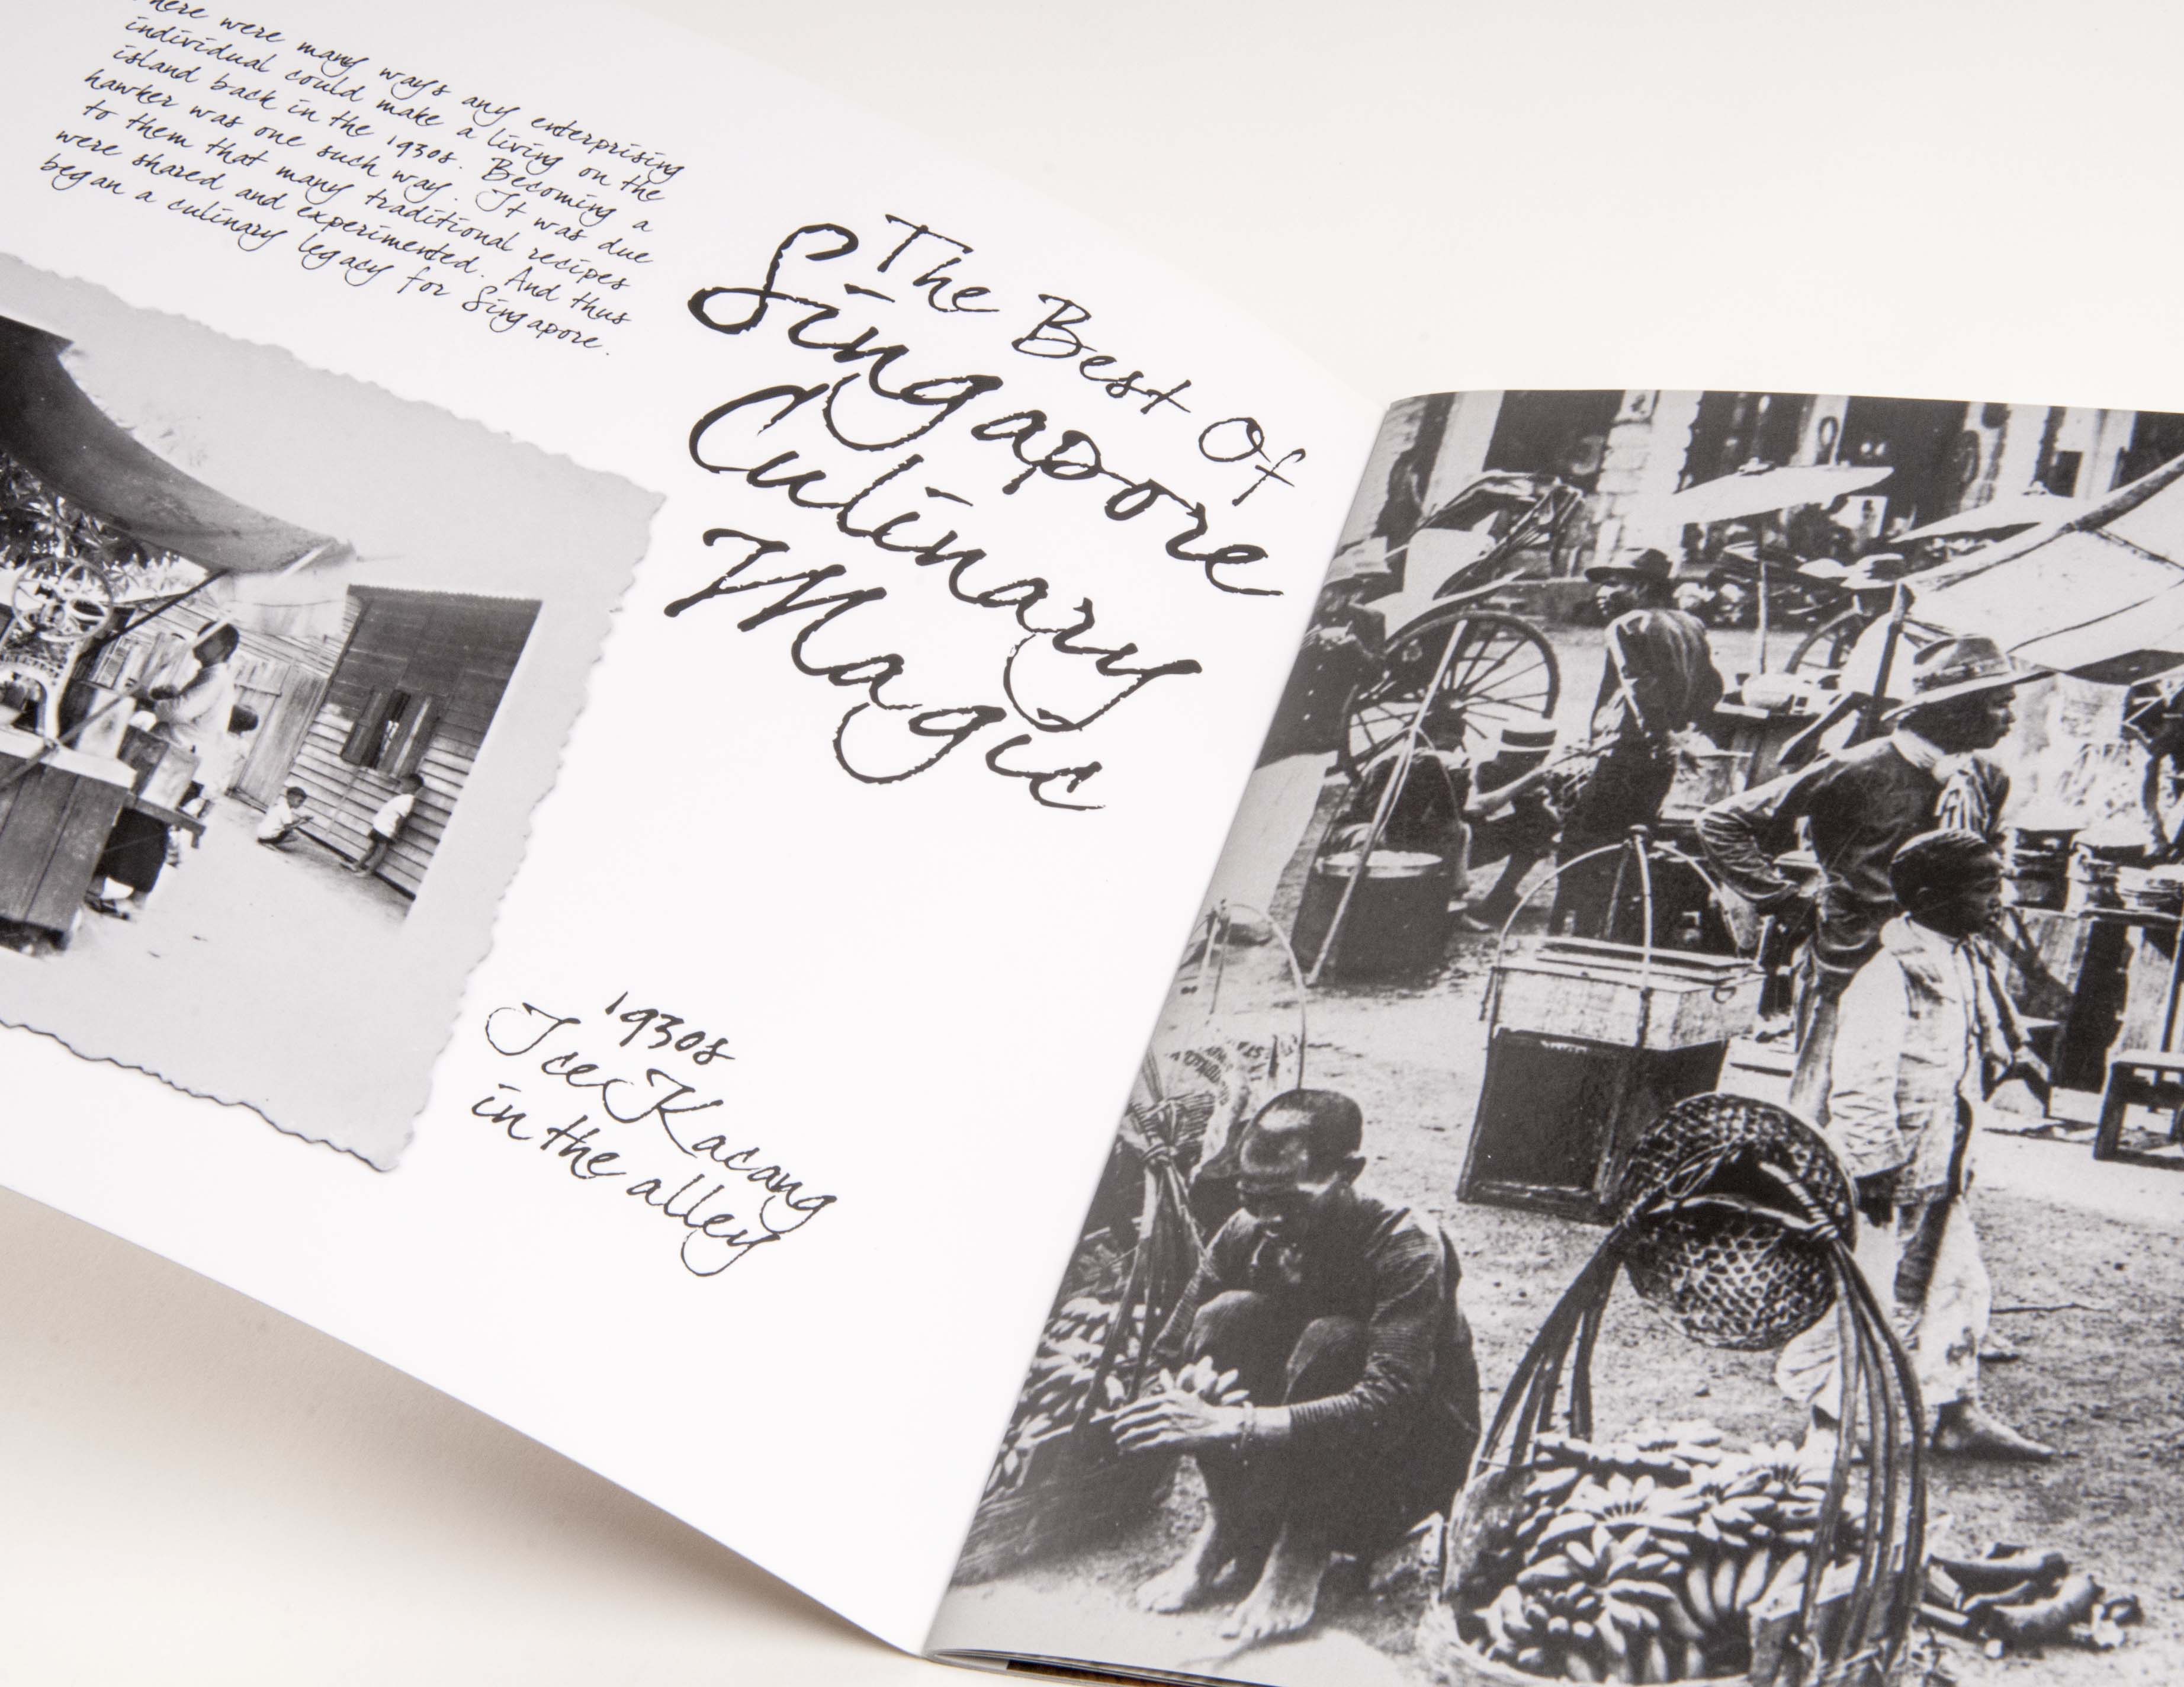 There were many ways any enterprising
individual could make a living on the
island back in the 1930s. Becoming a
hawker was one such way. It was due
to them that many traditional recipes
were shared and experimented. And thus
began a culinary legacy for Singapore.
The Best Of
Singapore
Culinary
Magic
1930s
Ice Kacang
in the alley